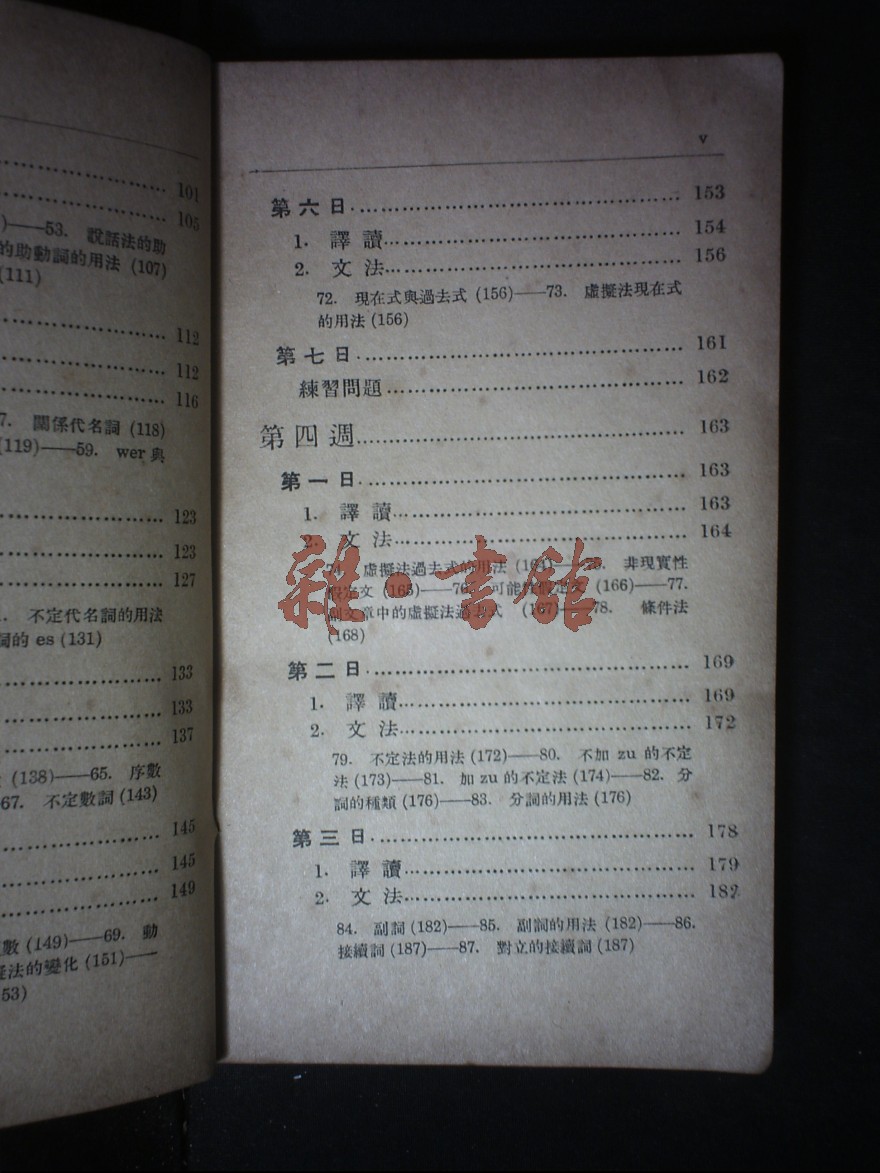 101
105
)——53. 說話法的助
的助動詞的用法 (107)
(111)
112
112
116
7. 關係代名詞 (118)
(119)——59. wer 與
123
123
127
不定代名詞的用法
詞的 es (131)
133
133
137
(138)——65. 序數
67. 不定數詞 (143)
145
145
149
數 (149)——69. 動
擬法的變化 (151)——
53)
v
第六日 153
1. 譯讀 154
2. 文法 156
72. 現在式與過去式 (156)——73. 虛擬法現在式
的用法 (156)
第七日 161
練習問題 162
第四週 163
第一日 163
1. 譯讀 163
2. 文法 164
74. 虛擬法過去式的用法 (164)——75. 非現實性
假定文 (165)——76. 可能性假定文 (166)——77.
副文章中的虛擬法過去式 (167)——78. 條件法
(168)
第二日 169
1. 譯讀 169
2. 文法 172
79. 不定法的用法 (172)——80. 不加 zu 的不定
法 (173)——81. 加 zu 的不定法 (174)——82. 分
詞的種類 (176)——83. 分詞的用法 (176)
第三日 178
1. 譯讀 179
2. 文法 182
84. 副詞 (182)——85. 副詞的用法 (182)——86.
接續詞 (187)——87. 對立的接續詞 (187)
雜·書館